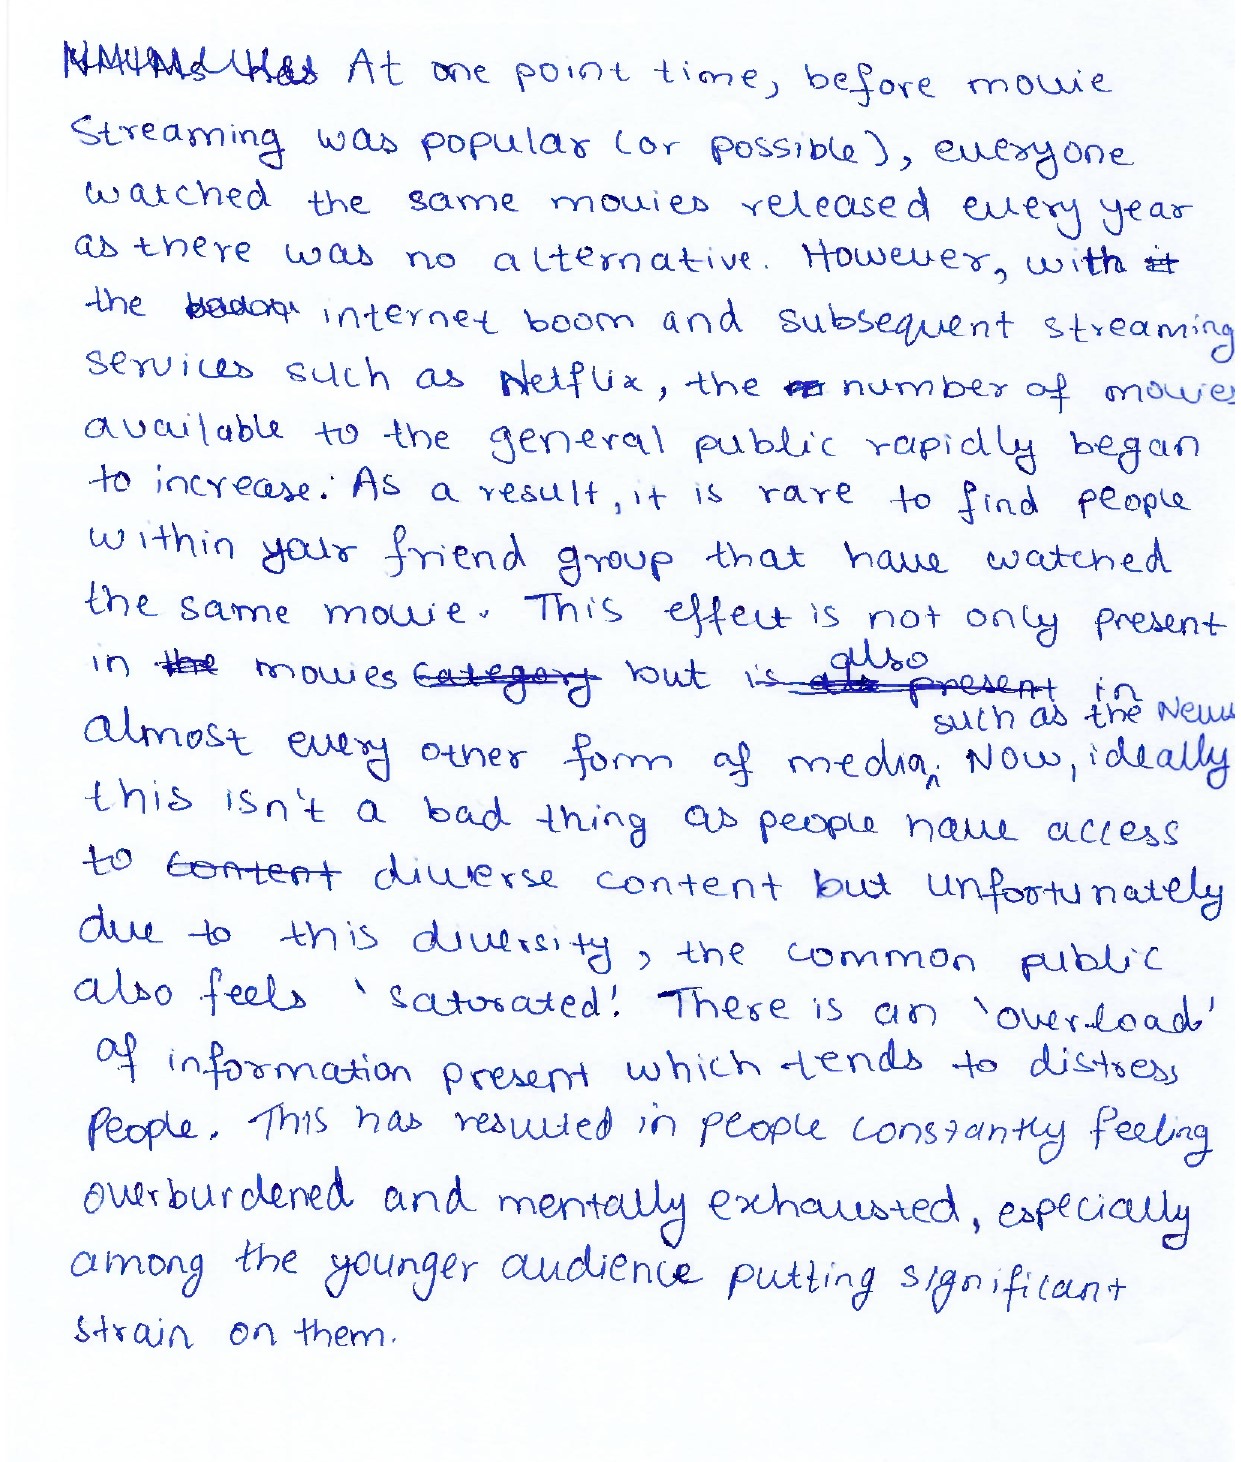 At one point time, before movie
Streaming was popular (or possible), everyone
watched the same movies released every year
as there was no alternative. However, with it
the internet boom and subsequent streaming
services such as Netflix, the number of movies
available to the general public rapidly began
to increase. As a result, it is rare to find people
within your friend group that have watched
the same movie. This effect is not only present
in the movies category but is also present in
such as the News
almost every other form of media. Now, ideally
this isn't a bad thing as people have access
to content diverse content but unfortunately
due to this diversity, the common public
also feels 'saturated'. There is an 'overload'
of information present which tends to distress
People. This has resulted in people constantly feeling
overburdened and mentally exhausted, especially
among the younger audience putting significant
strain on them.